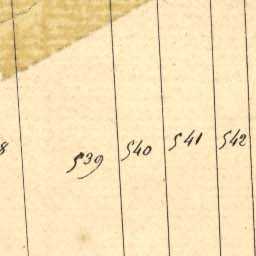 8
539
540
541
542